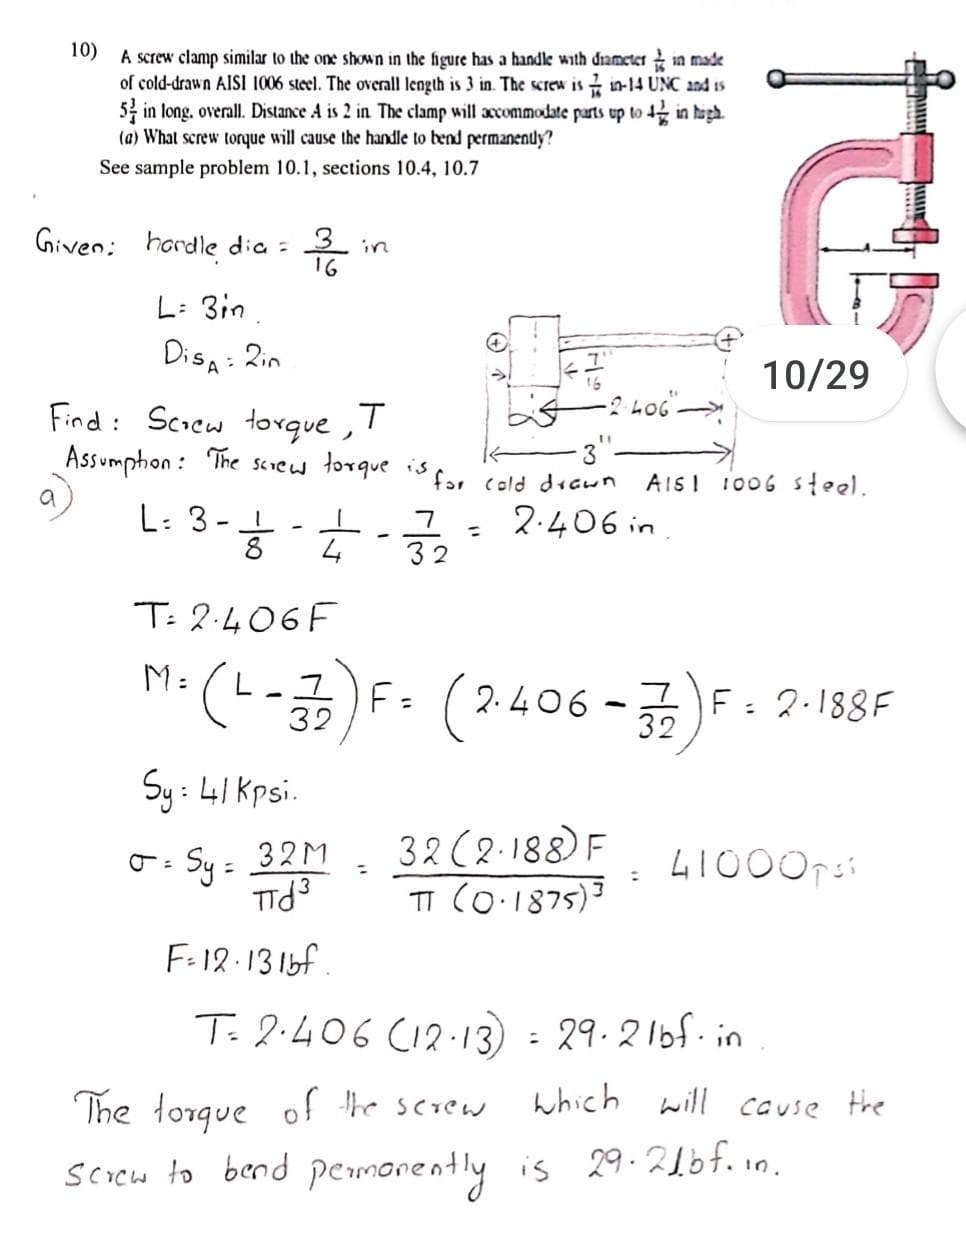 10) A screw clamp similar to the one shown in the figure has a handle with diameter 3/16 in made
of cold-drawn AISI 1006 steel. The overall length is 3 in. The screw is 7/16 in-14 UNC and is
5 3/4 in long, overall. Distance A is 2 in. The clamp will accommodate parts up to 4 3/16 in high.
(a) What screw torque will cause the handle to bend permanently?
See sample problem 10.1, sections 10.4, 10.7
A
B
Given: handle dia = 3/16 in
L = 3in.
DisA = 2in
7"/16
2.406"
3"
10/29
Find: Screw torque, T
Assumption: The screw torque is for cold drawn AISI 1006 steel.
a) L = 3 - 1/8 - 1/4 - 7/32 = 2.406 in.
T = 2.406F
M = (L - 7/32) F = (2.406 - 7/32) F = 2.188F
Sy = 41 Kpsi.
σ = Sy = 32M/πd³ = 32(2.188)F/π(0.1875)³ = 41000psi
F = 12.13 lbf.
T = 2.406 (12.13) = 29.2 lbf.in.
The torque of the screw which will cause the
screw to bend permanently is 29.2lbf.in.